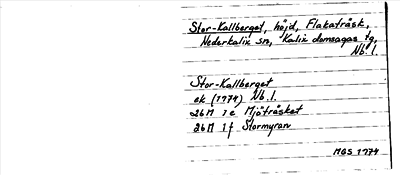 Stor-Kallberget, höjd, Flakaträsk,
Nederkalix sn, Kalix domsagas tg,
Nb. l.
Stor-Kallberget
ek (1974) Nb. l.
26M 1e Mjöträsket
26M 1f Stormyran
MGS 1974